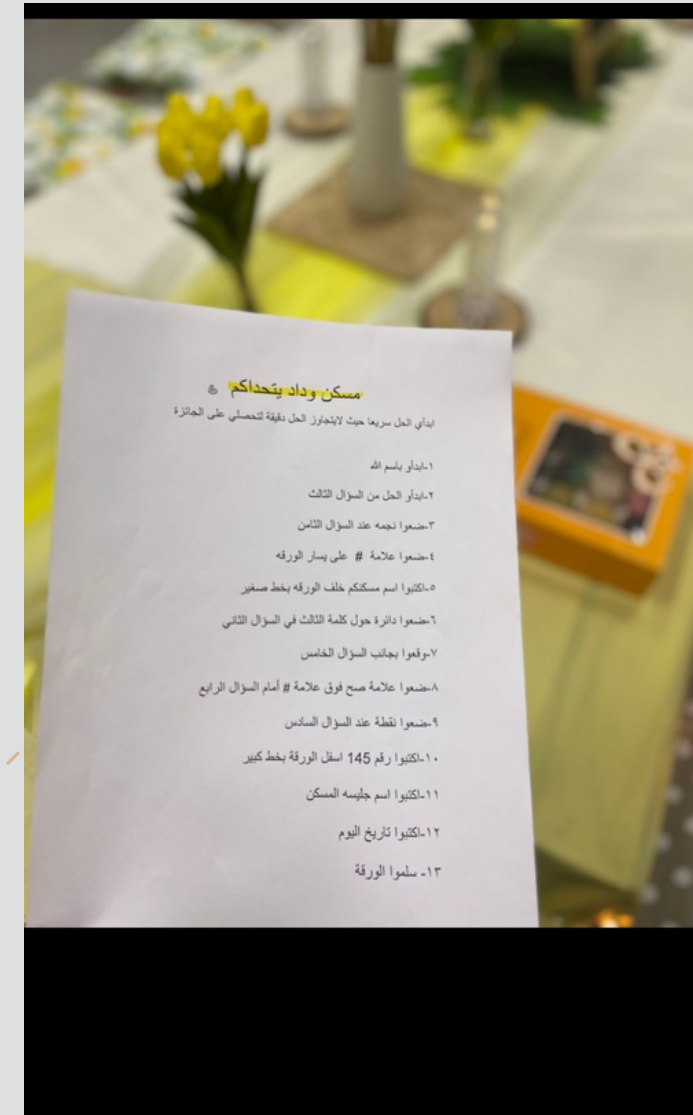 مسكن وداد يتحداكم
ابدأي الحل سريعا حيث لايتجاوز الحل دقيقة لتحصلي على الجائزة
١-ابدأو باسم الله
٢-ابدأو الحل من السؤال الثالث
٣-ضعوا نجمه عند السؤال الثامن
٤-ضعوا علامة # على يسار الورقه
٥-اكتبوا اسم مسكنكم خلف الورقه بخط صغير
٦-ضعوا دائرة حول كلمة الثالث في السؤال الثاني
٧-وقعوا بجانب السؤال الخامس
٨-ضعوا علامة صح فوق علامة # أمام السؤال الرابع
٩-ضعوا نقطة عند السؤال السادس
١٠-اكتبوا رقم 145 اسفل الورقة بخط كبير
١١-اكتبوا اسم جليسه المسكن
١٢-اكتبوا تاريخ اليوم
١٣- سلموا الورقة